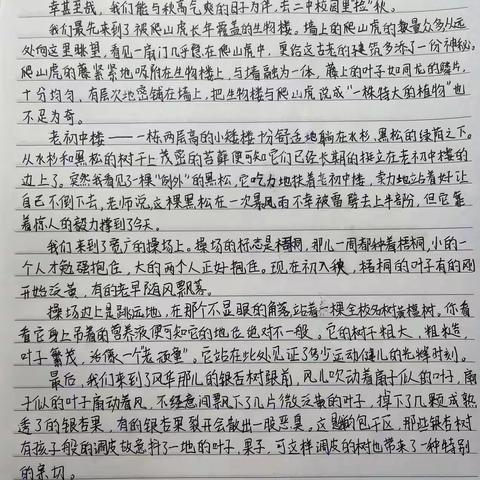 幸甚至哉，我们能与秋高气爽的日子为伴，去二中校园里捡"秋"。
我们最先来到了被爬山虎长年覆盖的生物楼。墙上的爬山虎的数量众多从远
处向这里眺望，看见一扇门几乎隐在爬山虎中，更给这古老的建筑多添了一份神秘。
爬山虎的藤紧紧地吸附在生物楼上，与墙融为一体，藤上的叶子如同龙的鳞片，
十分均匀，有层次地密铺在墙上，把生物楼与爬山虎说成"一株特大的植物"也
不足为奇。
老初中楼——一栋两层高的小矮楼十份舒适地躺在水杉、黑松的绿荫之下。
从水杉和黑松的树干上茂密的苔藓便可知它们已经长期的挺立在老初中楼的
边上了。突然我看见了一棵"例外"的黑松，它吃力地扶着老初中楼，卖力地站着好让
自己不倒下去，老师说，这棵黑松在一次暴风雨不幸被雷劈去上半部份，但它靠
着惊人的毅力撑到了今天。
我们来到了宽广的操场上。操场的标志是梧桐，那儿一周都种着梧桐，小的一
个人才勉强抱住，大的两个人正好抱住。现在初入秋，梧桐的叶子有的刚
开始泛黄，有的老早随风飘落。
操场边上是跳远地，在那个不显眼的角落站着一棵全校名树黄檀树。你看
看它身上吊着的营养液便可知它的地位绝对不一般。它的树干粗大、粗糙，
叶子繁茂，活像一个"老顽童"。它站在此处见证了多少运动健儿的光辉时刻。
最后，我们来到了风华那儿的银杏树跟前，风儿吹动着扇子似的叶子，扇
子似的叶子扇动着风，不经意间飘下了几片微泛黄的叶子，掉下了几颗成熟
透了的银杏果，有的银杏果裂开会散出一股恶臭。这的包干区，那些银杏树
有孩子般的调皮故意抖了一地的叶子，果子，可这样调皮的树也带来了一种特别
的亲切。